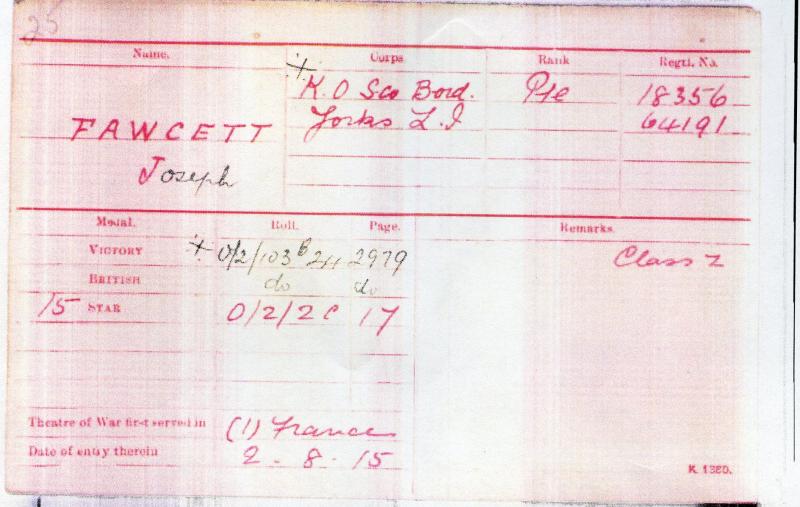 25
Name. Corps Rank Regtl. No.
+ K. O Sco Bord. Pte 18356
FAWCETT Yorks L. I 64191
Joseph
Medal. Roll. Page. Remarks.
VICTORY + O/2/103 B 24 2979 Class Z
BRITISH do do
15 STAR O/2/2 C 17
Theatre of War first served in (1) France
Date of entry therein 2 - 8 - 15
K 1380.